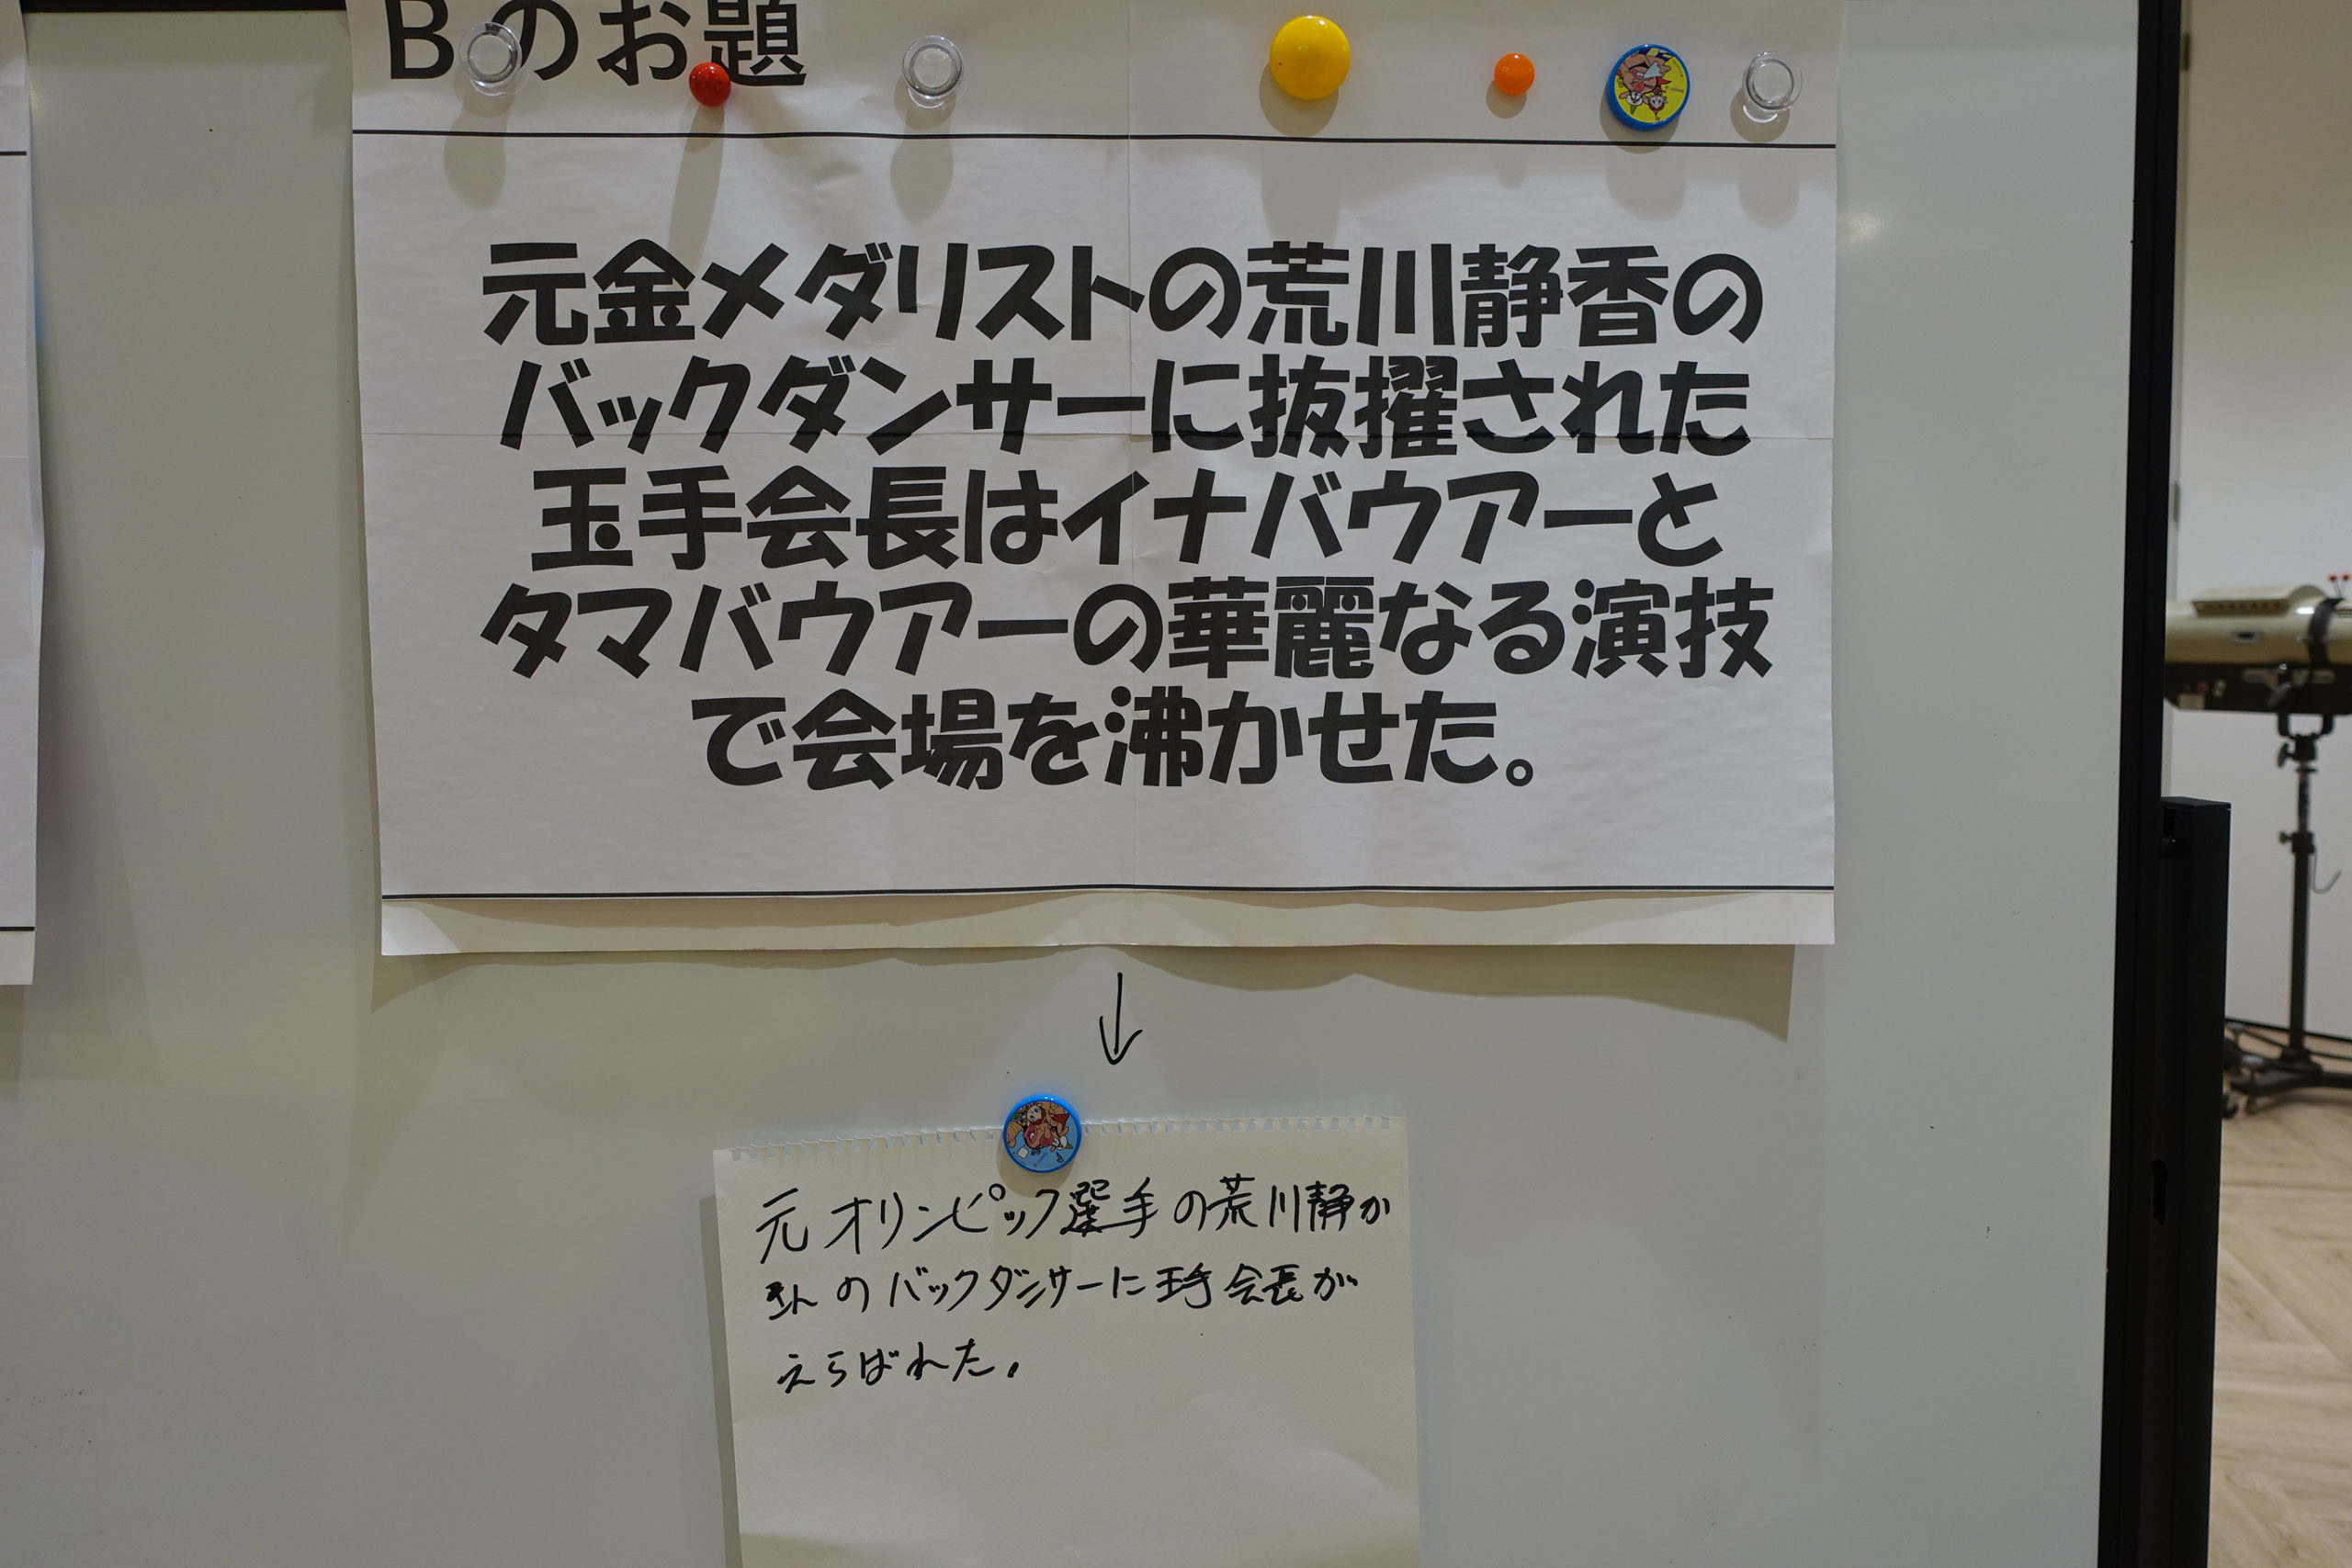 Bのお題
元金メダリストの荒川静香の
バックダンサーに抜擢された
玉手会長はイナバウアーと
タマバウアーの華麗なる演技
で会場を沸かせた。
元オリンピック選手の荒川静か
さんのバックダンサーに玉手会長が
えらばれた。